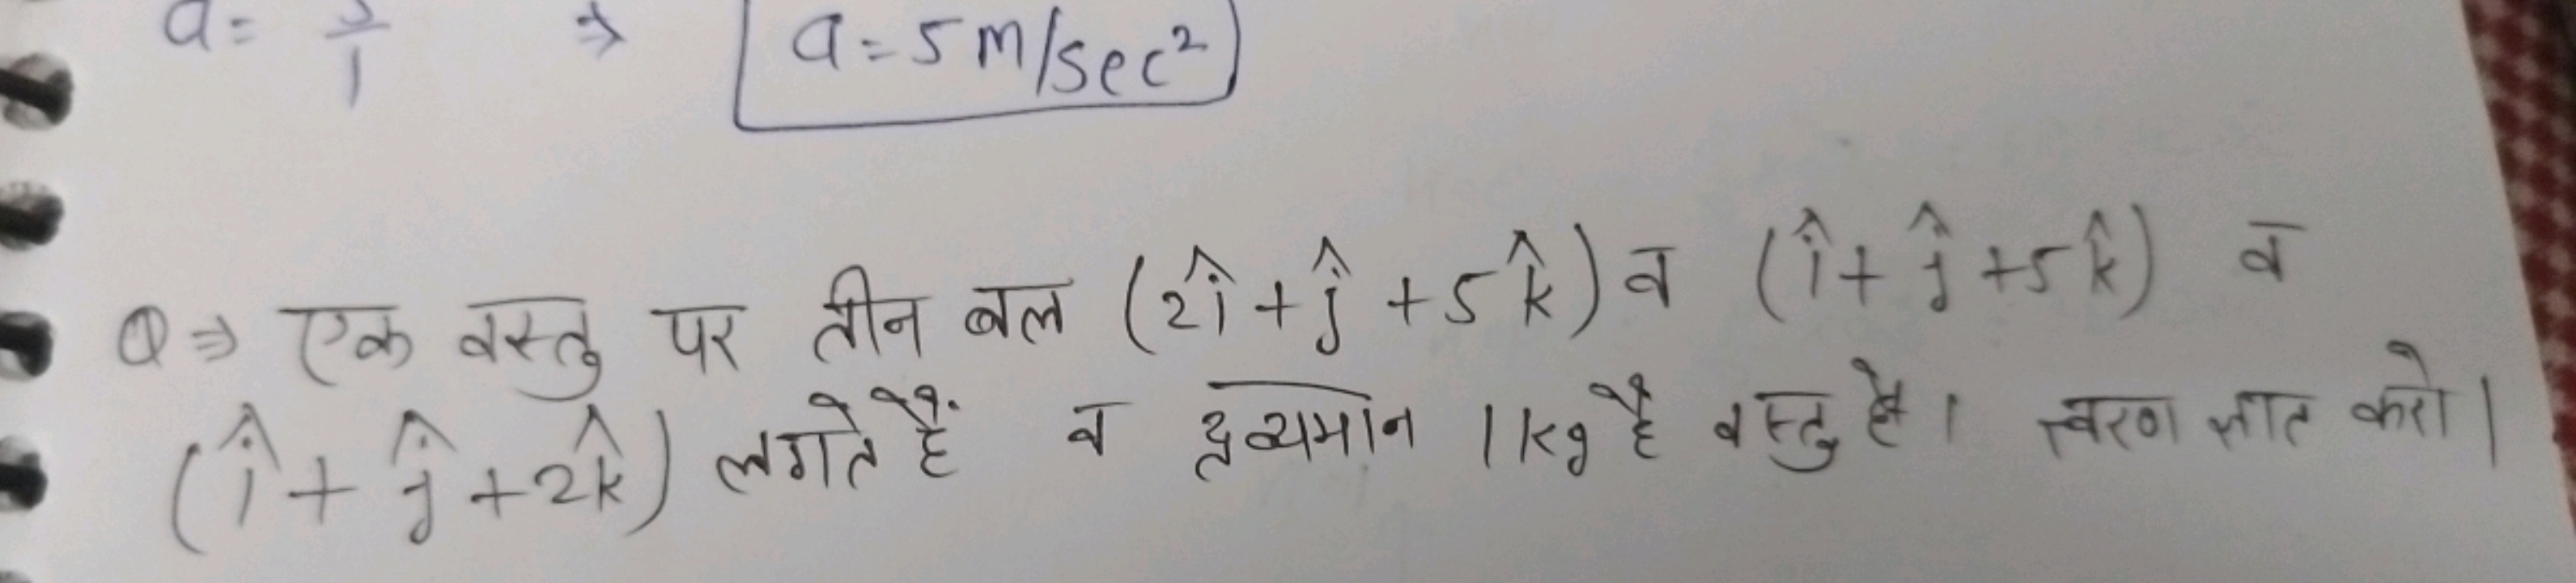 a = 5/1 ⇒ a = 5 m/sec²
Q ⇒ एक वस्तु पर तीन बल (2î + ĵ + 5k̂) व (î + ĵ + 5k̂) व
(î + ĵ + 2k̂) लगते हैं व द्रव्यमान 1kg है वस्तु है। त्वरण ज्ञात करो।